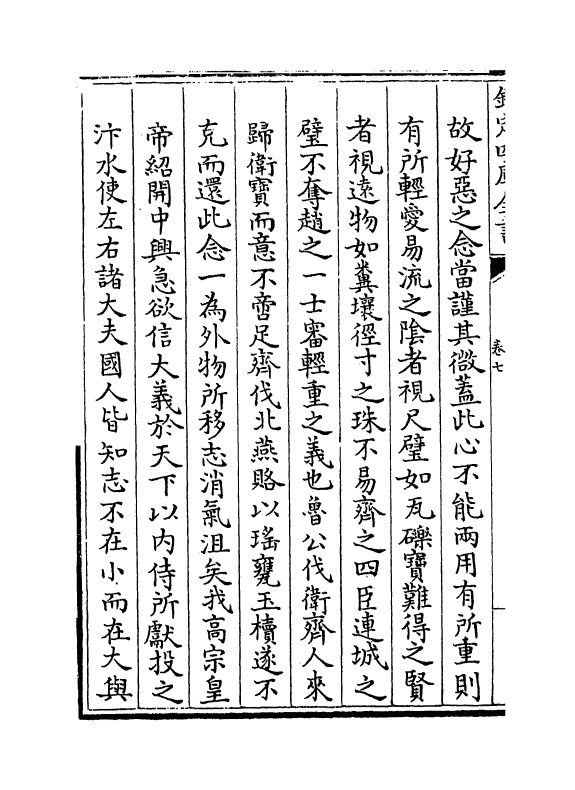 欽定四庫全書
卷七
故好惡之念當謹其微蓋此心不能兩用有所重則
有所輕愛易流之陰者視尺璧如瓦礫寶難得之賢
者視遠物如糞壤徑寸之珠不易齊之四臣連城之
璧不奪趙之一士審輕重之義也魯公伐衛齊人來
歸衛寶而意不啻足齊伐北燕賂以瑤甕玉櫝遂不
克而還此念一為外物所移志消氣沮矣我高宗皇
帝紹開中興急欲信大義於天下以內侍所獻投之
汴水使左右諸大夫國人皆知志不在小而在大與